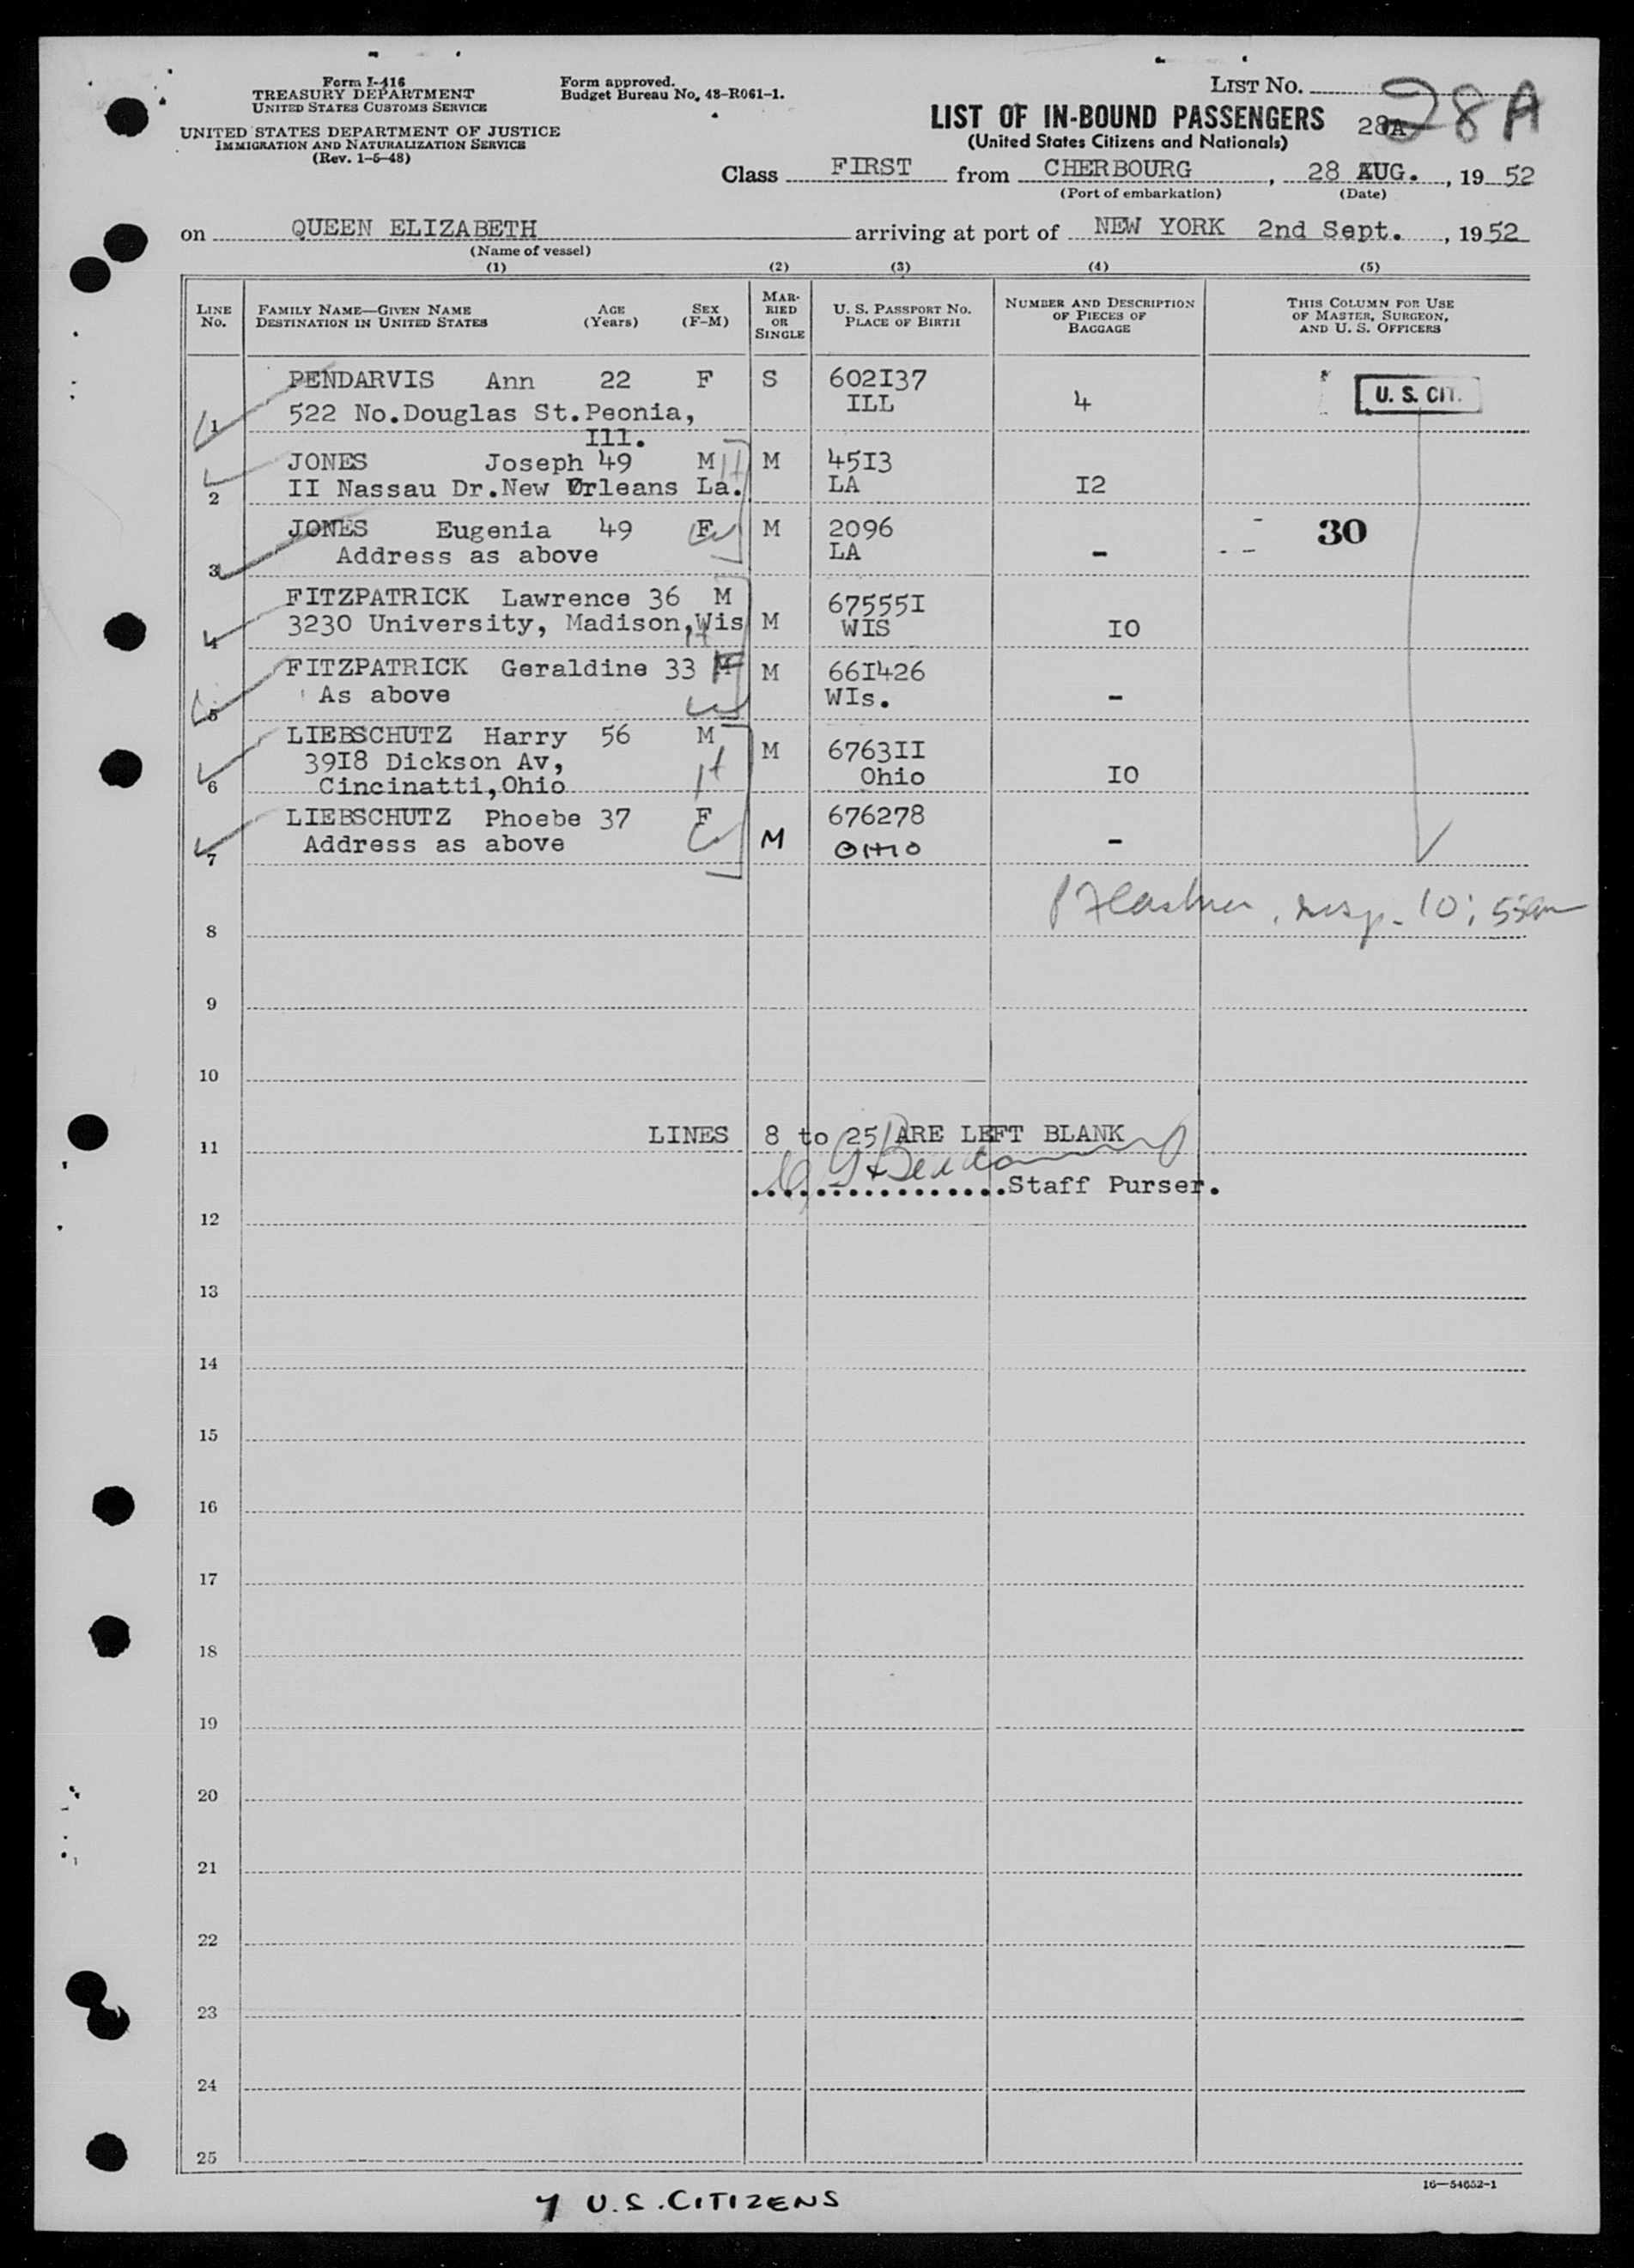 Form I-416
TREASURY DEPARTMENT
UNITED STATES CUSTOMS SERVICE
UNITED STATES DEPARTMENT OF JUSTICE
IMMIGRATION AND NATURALIZATION SERVICE
(Rev. 1-5-48)
Form approved.
Budget Bureau No. 43-R061-1.
LIST NO. 28A
LIST OF IN-BOUND PASSENGERS 28A
(United States Citizens and Nationals)
Class FIRST from CHERBOURG, 28 AUG., 1952
(Port of embarkation) (Date)
on QUEEN ELIZABETH arriving at port of NEW YORK 2nd Sept., 1952
(Name of vessel)
(1) (2) (3) (4) (5)
LINE NO.
FAMILY NAME—GIVEN NAME
DESTINATION IN UNITED STATES
AGE (Years)
SEX (F-M)
MARRIED OR SINGLE
U. S. PASSPORT NO.
PLACE OF BIRTH
NUMBER AND DESCRIPTION OF PIECES OF BAGGAGE
THIS COLUMN FOR USE OF MASTER, SURGEON, AND U. S. OFFICERS
PENDARVIS Ann 22 F S 602I37 U. S. CIT.
1 522 No.Douglas St.Peonia, ILL 4
Ill.
JONES Joseph 49 M H M 45I3
2 II Nassau Dr.New Orleans La. LA I2
JONES Eugenia 49 F W M 2096 30
3 Address as above LA -
FITZPATRICK Lawrence 36 M 67555I
4 3230 University, Madison,Wis H M WIS IO
FITZPATRICK Geraldine 33 F M 66I426
5 As above W WIs. -
LIEBSCHUTZ Harry 56 M M 6763II
39I8 Dickson Av, H Ohio IO
6 Cincinatti,Ohio
LIEBSCHUTZ Phoebe 37 F 676278
7 Address as above W M OHIO -
10:55am
8
9
10
11 LINES 8 to 25 ARE LEFT BLANK
................Staff Purser.
12
13
14
15
16
17
18
19
20
21
22
23
24
25
16—54652-1
7 U.S. CITIZENS